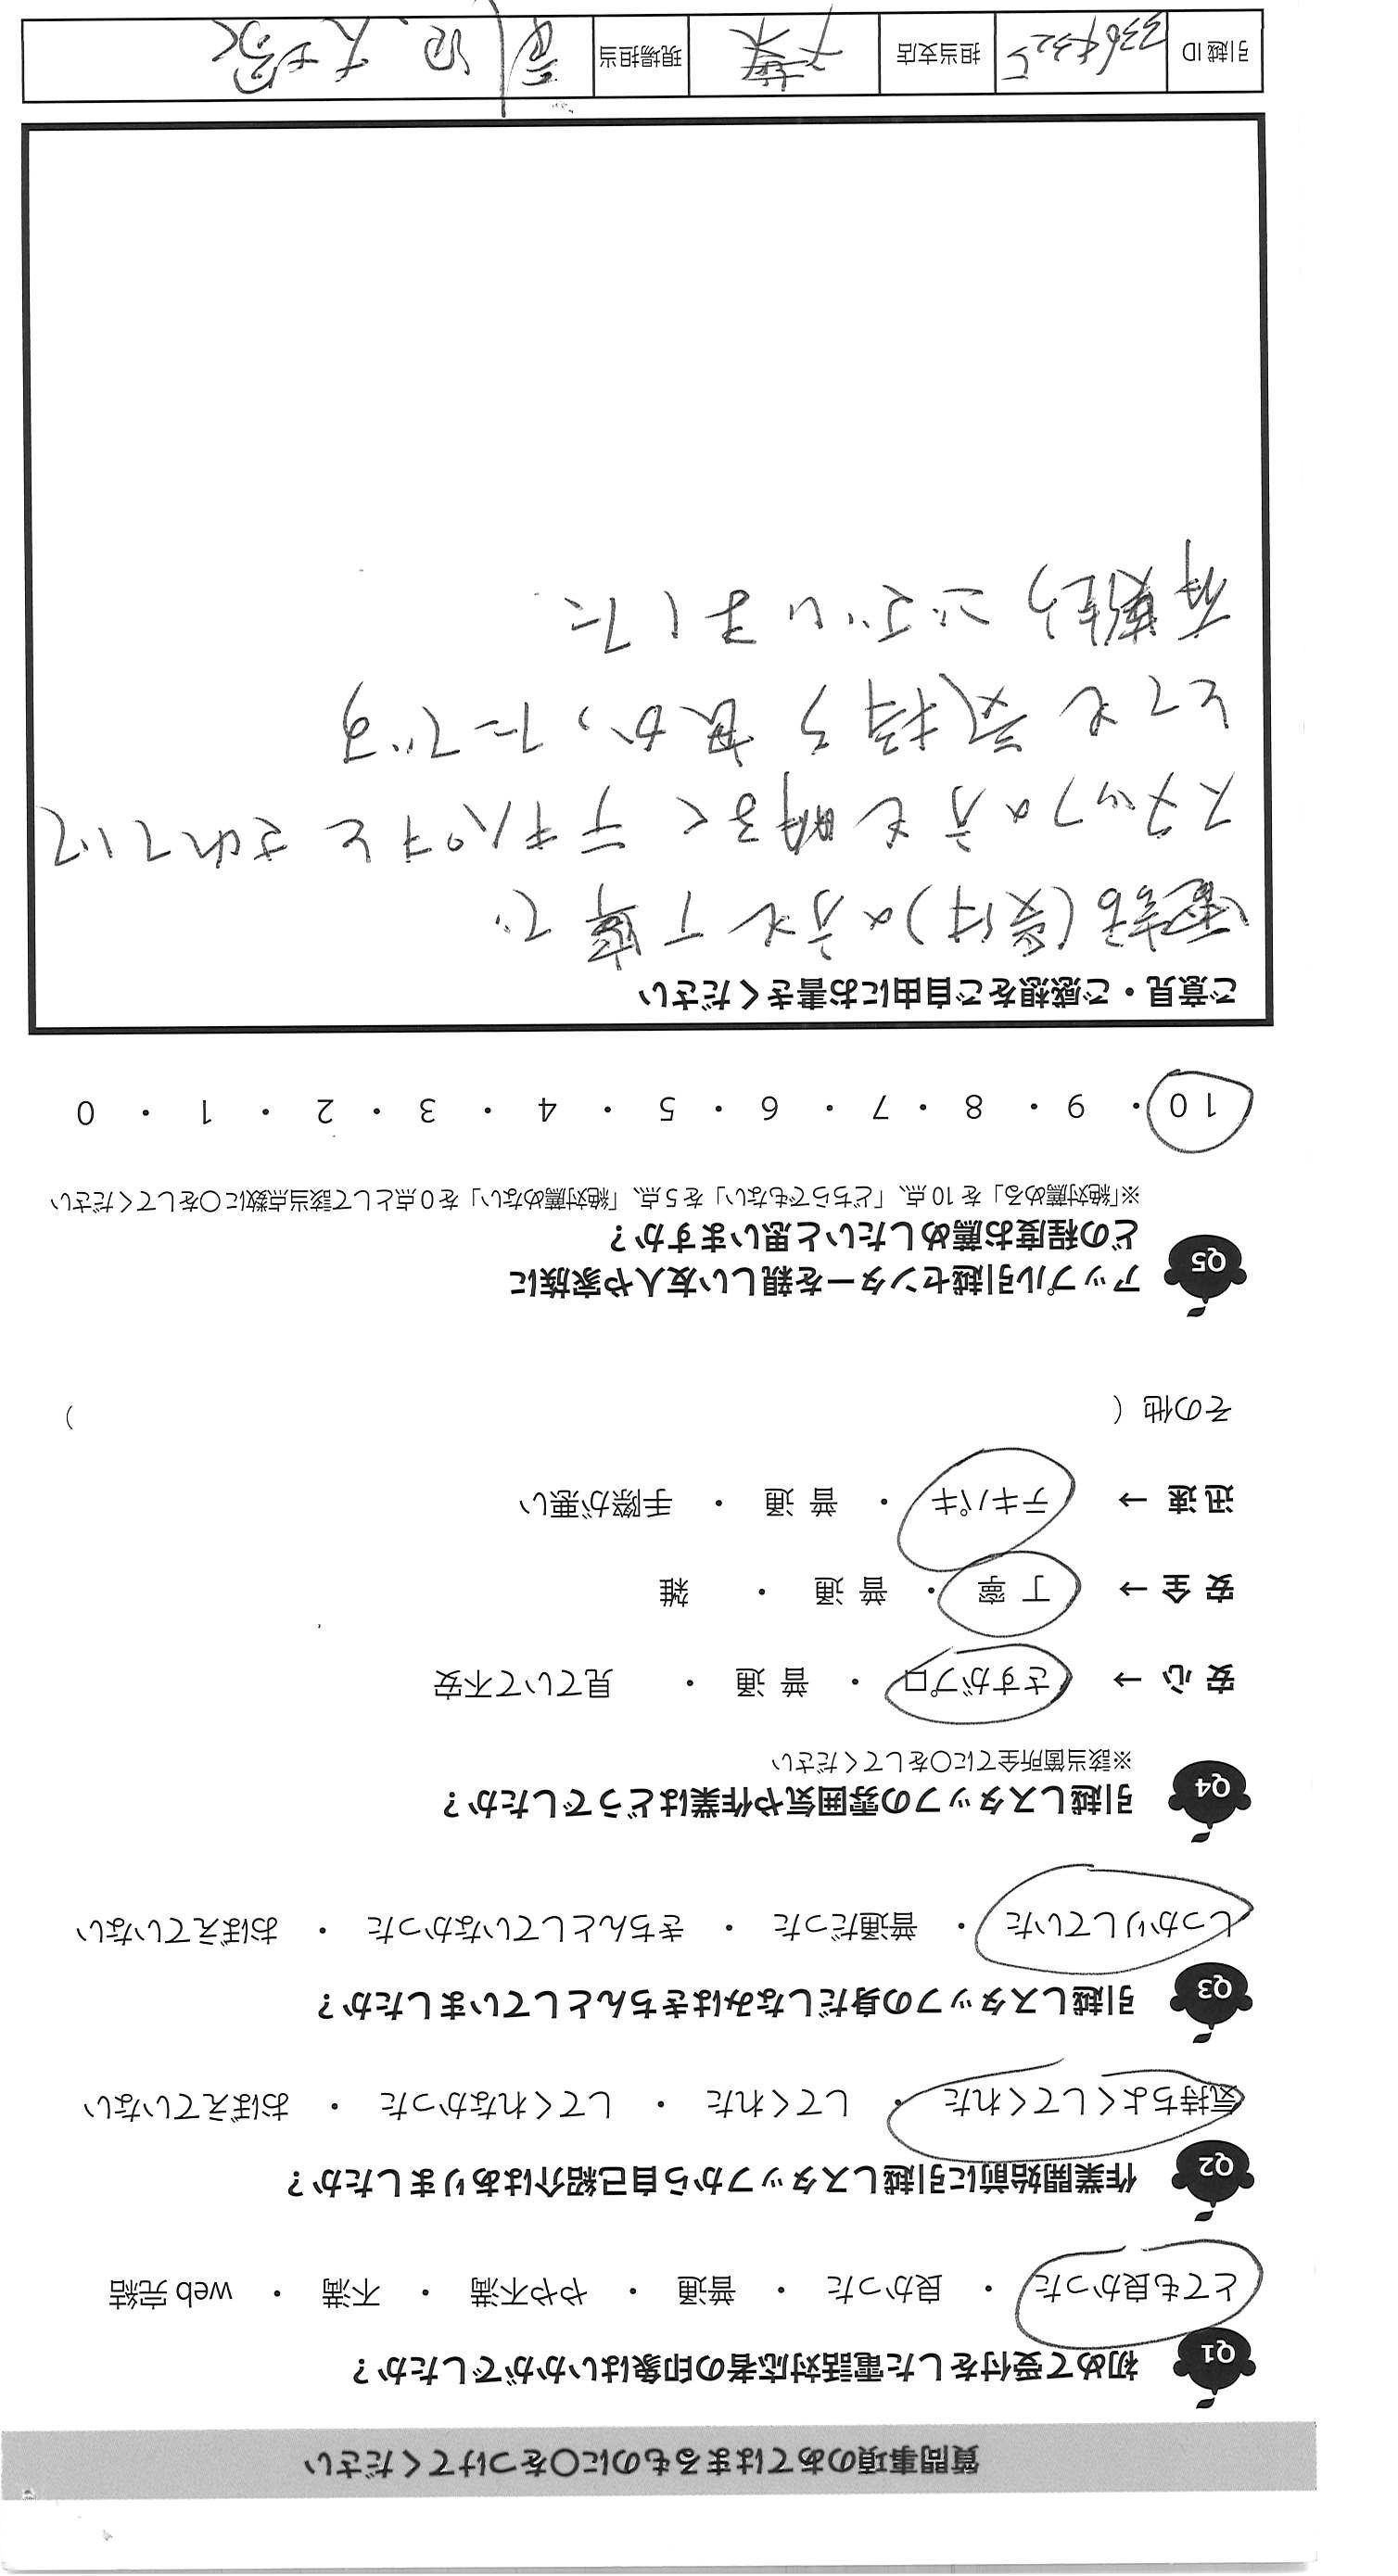 質問事項のあてはまるものに〇をつけてください
Q1 初めて受付をした電話対応者の印象はいかがでしたか？
とても良かった ・ 良かった ・ 普通 ・ やや不満 ・ 不満 ・ web 完結
Q2 作業開始前に引越しスタッフから自己紹介はありましたか？
気持ちよくしてくれた ・ してくれた ・ してくれなかった ・ おぼえていない
Q3 引越しスタッフの身だしなみはきちんとしていましたか？
しっかりしていた ・ 普通だった ・ きちんとしていなかった ・ おぼえていない
Q4 引越しスタッフの雰囲気や作業はどうでしたか？
※該当箇所全てに〇をしてください
安心 → さすがプロ ・ 普通 ・ 見ていて不安
安全 → 丁寧 ・ 普通 ・ 雑
迅速 → テキパキ ・ 普通 ・ 手際が悪い
その他（ ）
Q5 アップル引越センターを親しい友人や家族に
どの程度お薦めしたいと思いますか？
※「絶対薦める」を 10 点、「どちらでもない」を 5 点、「絶対薦めない」を 0 点として該当点数に〇をしてください
10 ・ 9 ・ 8 ・ 7 ・ 6 ・ 5 ・ 4 ・ 3 ・ 2 ・ 1 ・ 0
ご意見・ご感想をご自由にお書きください
電話(受付)の方も丁寧で
スタッフの方も明るくテキパキとされていて
とても気持ち良かったです
有難うございました
引越 ID 担当支店 千葉 現場担当